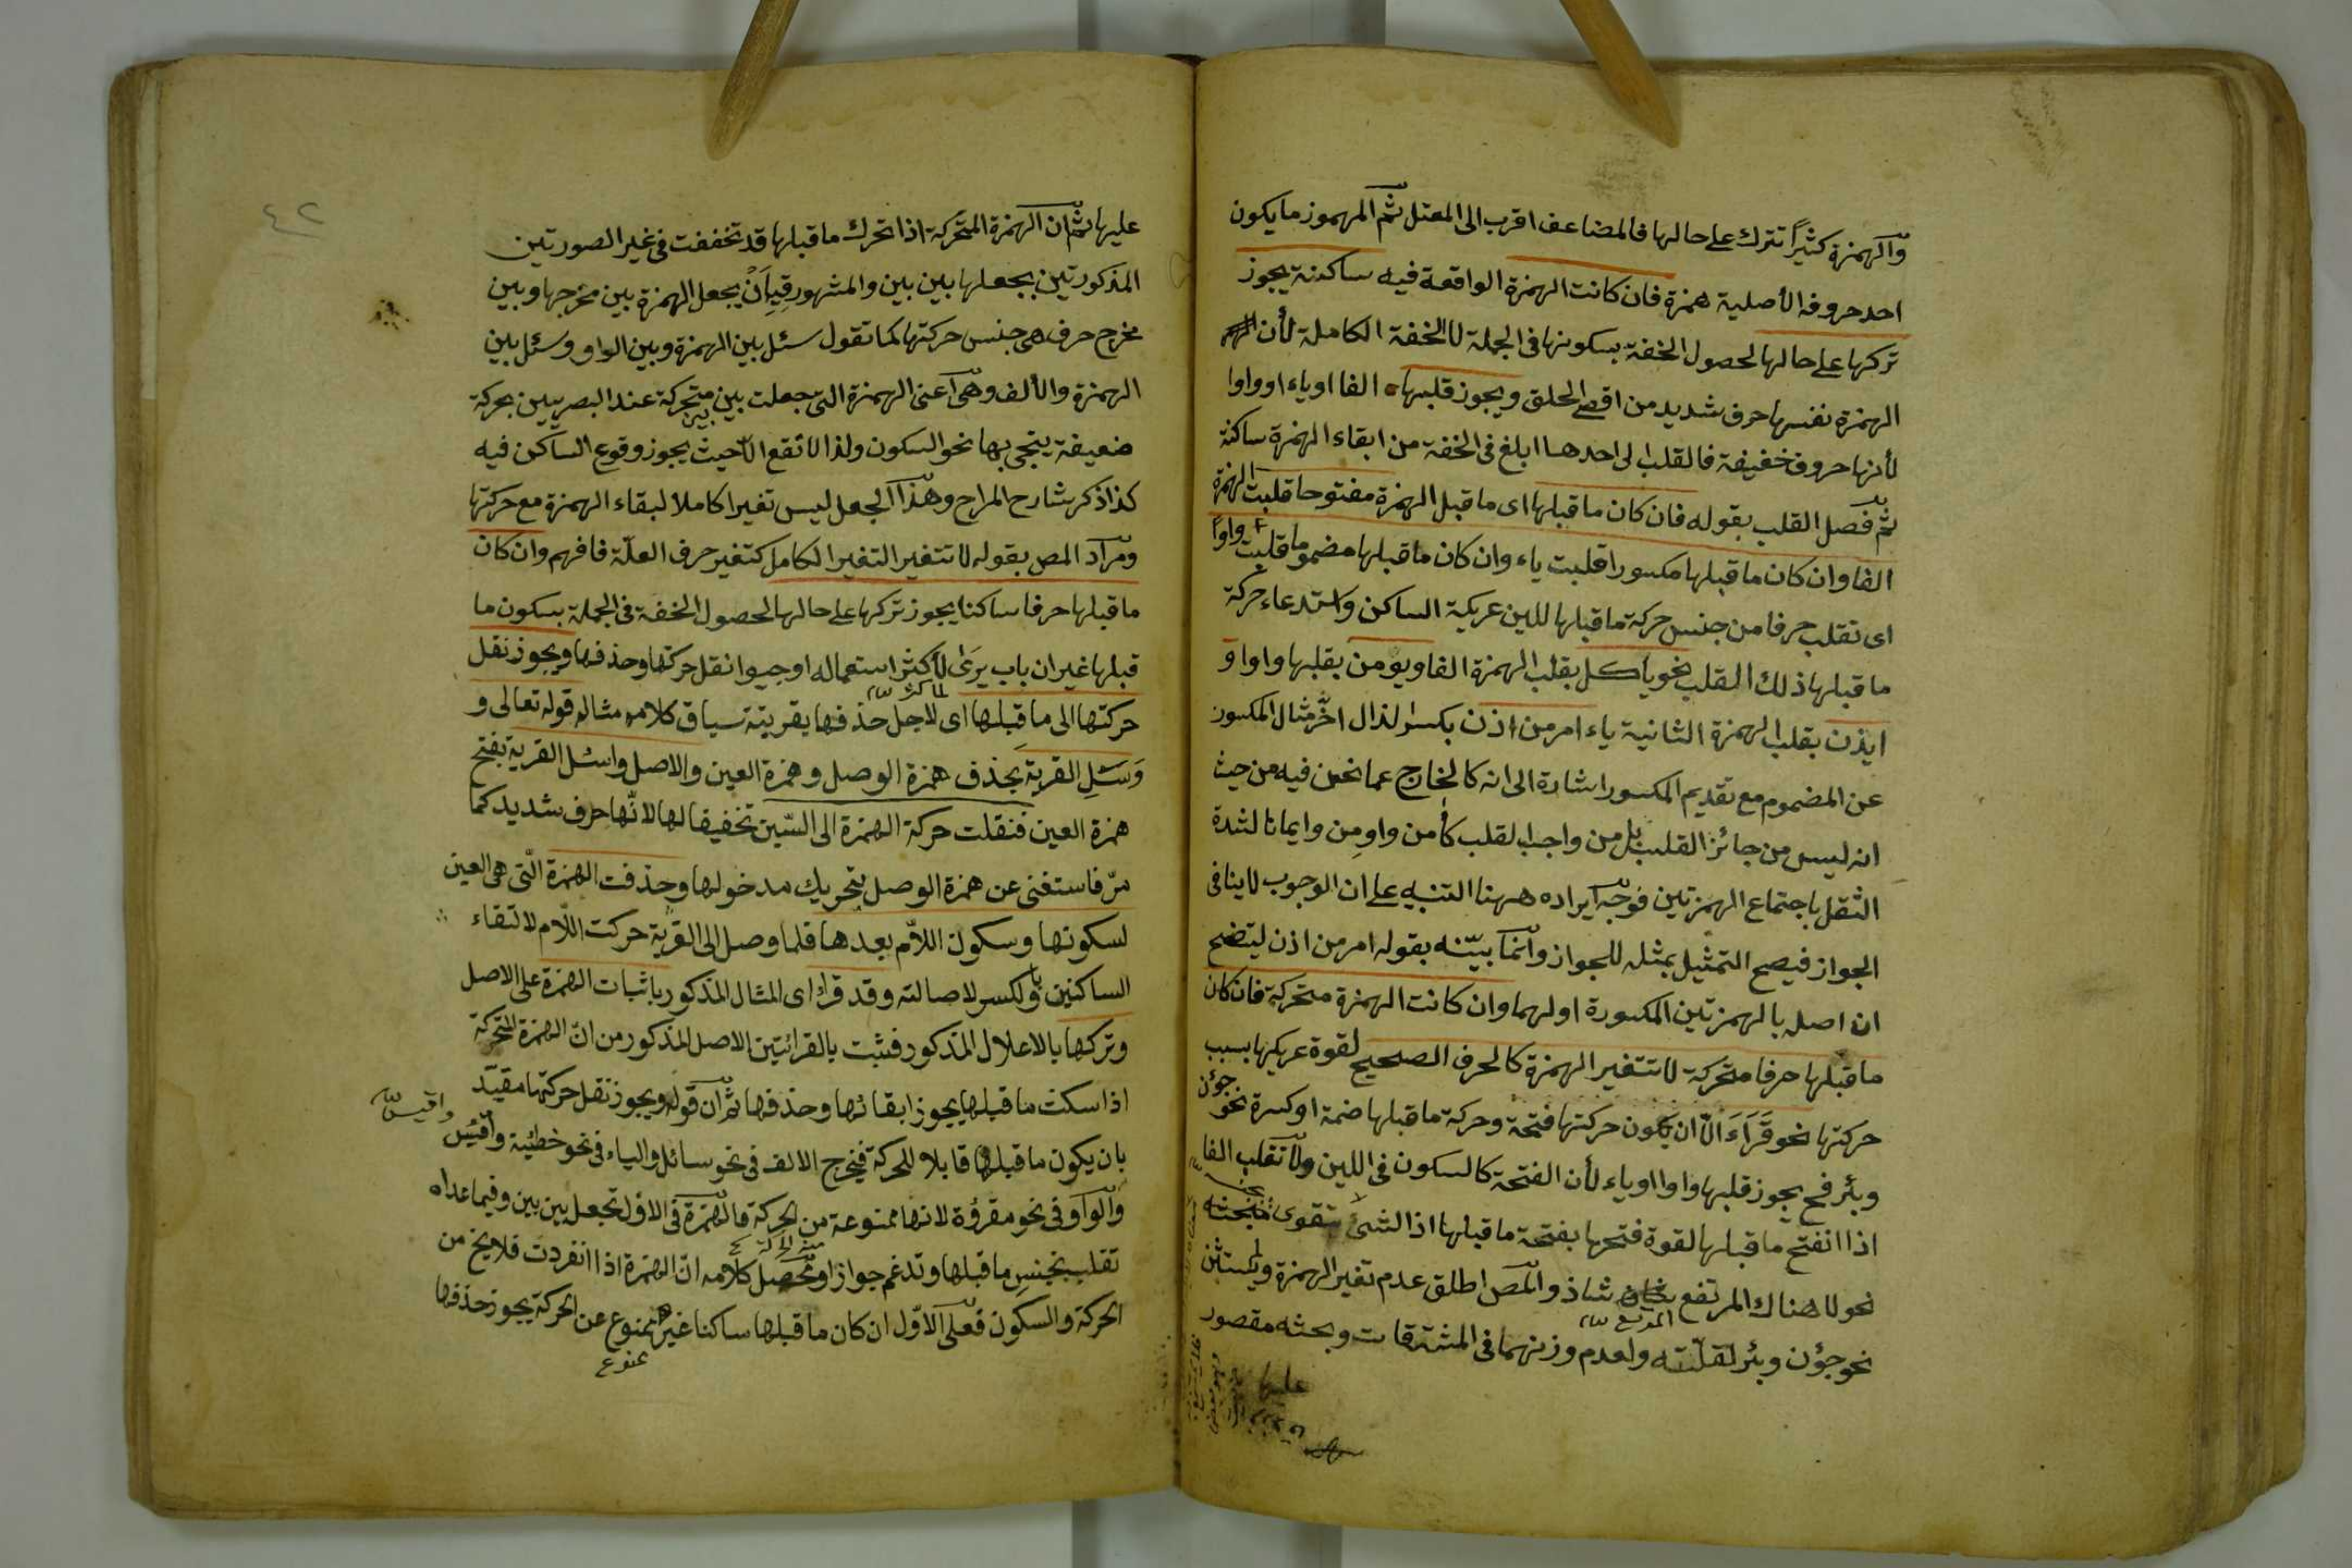 والهمزة كثيرًا تترك على حالها فالمضاعف اقرب الى المعتل ثم المهموز ما يكون
احد حروفه الأصلية همزة فان كانت الهمزة الواقعة فيه ساكنة يجوز
تركها على حالها لحصول الخفة بسكونها فى الجملة لا الخفة الكاملة لأن
الهمزة نفسها حرف شديد من اقصى الحلق ويجوز قلبها الفا او ياء او واوا
لأنها حروف خفيفة فالقلب الى احدها ابلغ فى الخفة من ابقاء الهمزة ساكنة
ثم فصل القلب بقوله فان كان ما قبلها اى ما قبل الهمزة مفتوحا قلبت الهمزة
الفا وان كان ما قبلها مكسورا قلبت ياء وان كان ما قبلها مضموما قلبت واوًا
اى تقلب حرفا من جنس حركة ما قبلها للين عريكة الساكن واستدعاء حركة
ما قبلها ذلك القلب نحو ياكل بقلب الهمزة الفا ويومن بقلبها واوا و
ايذن بقلب الهمزة الثانية ياء امر من اذن بكسر الذال اخّر مثال المكسور
عن المضموم مع تقديم المكسور اشارة الى انه كالخارج عما نحن فيه من حيث
انه ليس من جائز القلب بل من واجب القلب كأمن واومن وايمانا لشدة
الثقل باجتماع الهمزتين فوجه ايراده ههنا التنبيه على ان الوجوب لا ينافى
الجواز فيصح التمثيل بمثله للجواز وانما بيّنه بقوله امر من اذن ليتضح
ان اصله بالهمزتين المكسورة اولهما وان كانت الهمزة متحركة فان كان
ما قبلها حرفا متحركة لا تتغير الهمزة كالحرف الصحيح لقوة عريكها بسبب
حركتها نحو قَرَاَءَ الّا ان يكون حركتها فتحة وحركة ما قبلها ضمة او كسرة نحو جؤن
وبئر فح يجوز قلبها واوا او ياء لأن الفتحة كالسكون فى اللين ولا تقلب الفا
اذا انفتح ما قبلها لقوة فتحها بفتحة ما قبلها اذ الشئ يتقوى بجنسه
نحو لا هناك المرتفع شاذ والمص اطلق عدم تغير الهمزة ولم يستثن
المرتع
نحو جؤن وبئر لقلّته ولعدم وزنهما فى المشتقات وبحثه مقصور
عليها
٤٢
عليها ثم ان الهمزة المتحركة اذا تحرك ما قبلها قد تخففت فى غير الصورتين
المذكورتين بجعلها بين بين والمشهور فيه اَنْ يجعل الهمزة بين مخرجها وبين
مخرج حرف هى جنس حركتها كما تقول سئل بين الهمزة وبين الواو وسئل بين
الهمزة والألف وهى اعنى الهمزة التى جعلت بين بين متحركة عند البصريين بحركة
ضعيفة ينجى بها نحو السكون ولذا لا تقع الا حيث يجوز وقوع الساكن فيه
كذا ذكر شارح المراح وهذا الجعل ليس تغيرا كاملا لبقاء الهمزة مع حركتها
ومراد المص بقوله لا تتغير التغير الكامل كتغير حرف العلّة فافهم وان كان
ما قبلها حرفا ساكنا يجوز تركها على حالها لحصول الخفة فى الجملة بسكون ما
قبلها غير ان باب يرَى لأكثر استعماله اوجبوا نقل حركتها وحذفها ويجوز نقل
حركتها الى ما قبلها اى لاجل حذفها بقرينة سياق كلامه مثاله قوله تعالى و
وَسَئلِ القرية بحذف همزة الوصل وهمزة العين والاصل واسئل القرية بفتح
همزة العين فنقلت حركة الهمزة الى السّين تخفيفا لها لانّها حرف شديد كما
مرّ فاستغنى عن همزة الوصل بتحريك مدخولها وحذفت الهمزة الّتى هى العين
لسكونها وسكون اللّام بعدها فلما وصل الى القرية حركت اللّام لالتقاء
الساكنين بالكسر لاصالته وقد قرئ اى المثال المذكور باثبات الهمزة على الاصل
وتركها بالاعلال المذكور فثبت بالقرائتين الاصل المذكور من انّ الهمزة المتحركة
اذا سكنت ما قبلها يجوز ابقائها وحذفها ثم ان قوله ويجوز نقل حركتها مقيّد
بان يكون ما قبلها قابلا للحركة فيخرج الالف فى نحو سائل والياء فى نحو خطيئة واقيّس
واقيس
والواو فى نحو مقروّة لانها ممنوعة من الحركة فالهمزة فى الاوّل تجعل بين بين وفيما عداه
تقلب بجنس ما قبلها وتدغم جوازا ومحصل كلامه انّ الهمزة اذا انفردت فلا يخ من
الحركة والسكون فعلى الاوّل ان كان ما قبلها ساكنا غير ممنوع عن الحركة يجوز حذفها
ممنوع